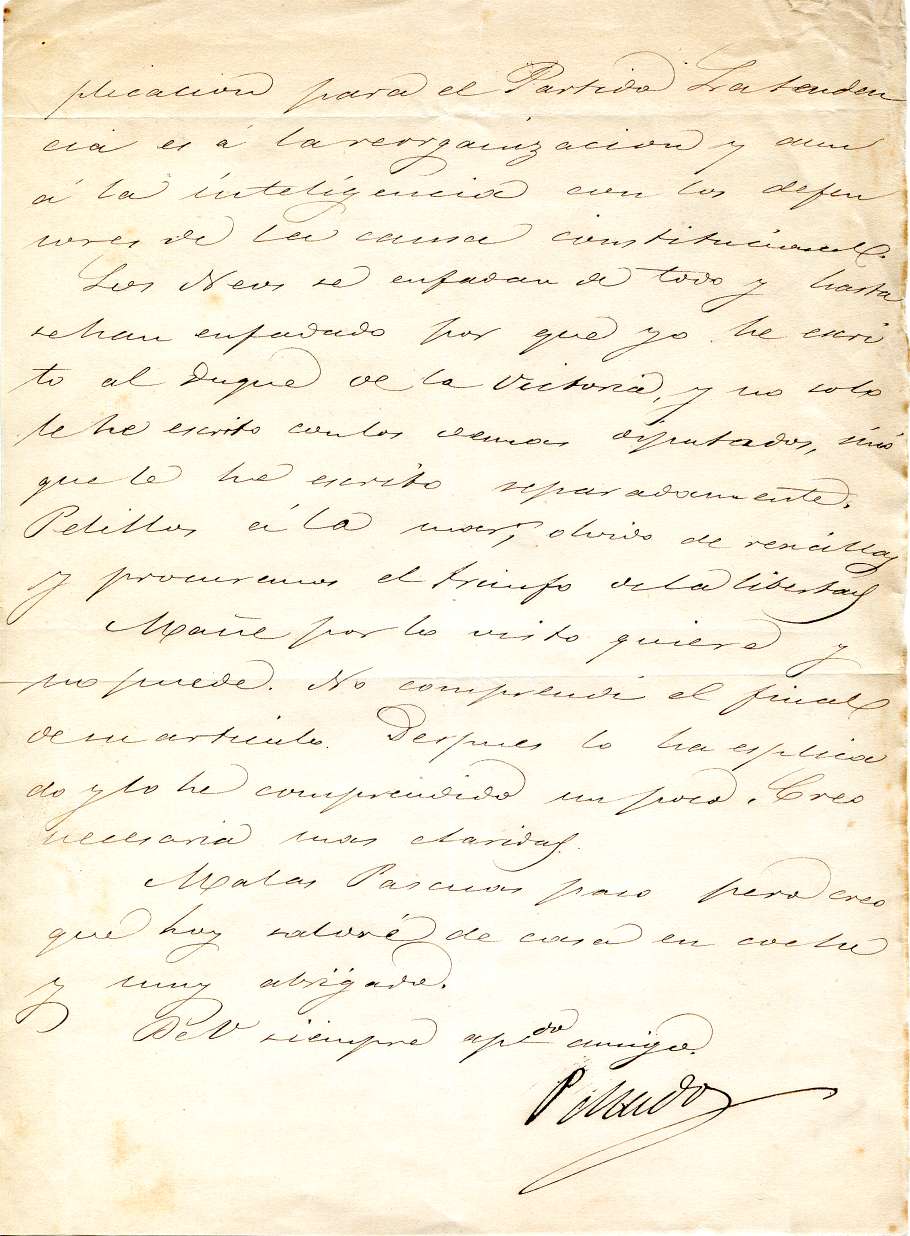 plicacion para el Partido La tenden
cia es á la reorganizacion y aun
á la inteligencia con los defen
sores de la causa constitucional.
Los Neos se enfadan de todo y hasta
se han enfadado por que yo he escri
to al Duque de la Victoria, y no solo
le he escrito con los demas diputados, sinó
que le he escrito separadamente.
Pelillos á la mar, olvido de rencillas
y procuremos el triunfo de la libertad
Mañe por lo visto quiere y
no puede. No comprendi el final
de su articulo. Despues lo ha esplica
do y lo he comprendido un poco. Creo
necesaria mas claridad.
Malas Pascuas paso pero creo
que hoy saldré de casa en coche
y muy abrigado.
De V siempre ap.do amigo.